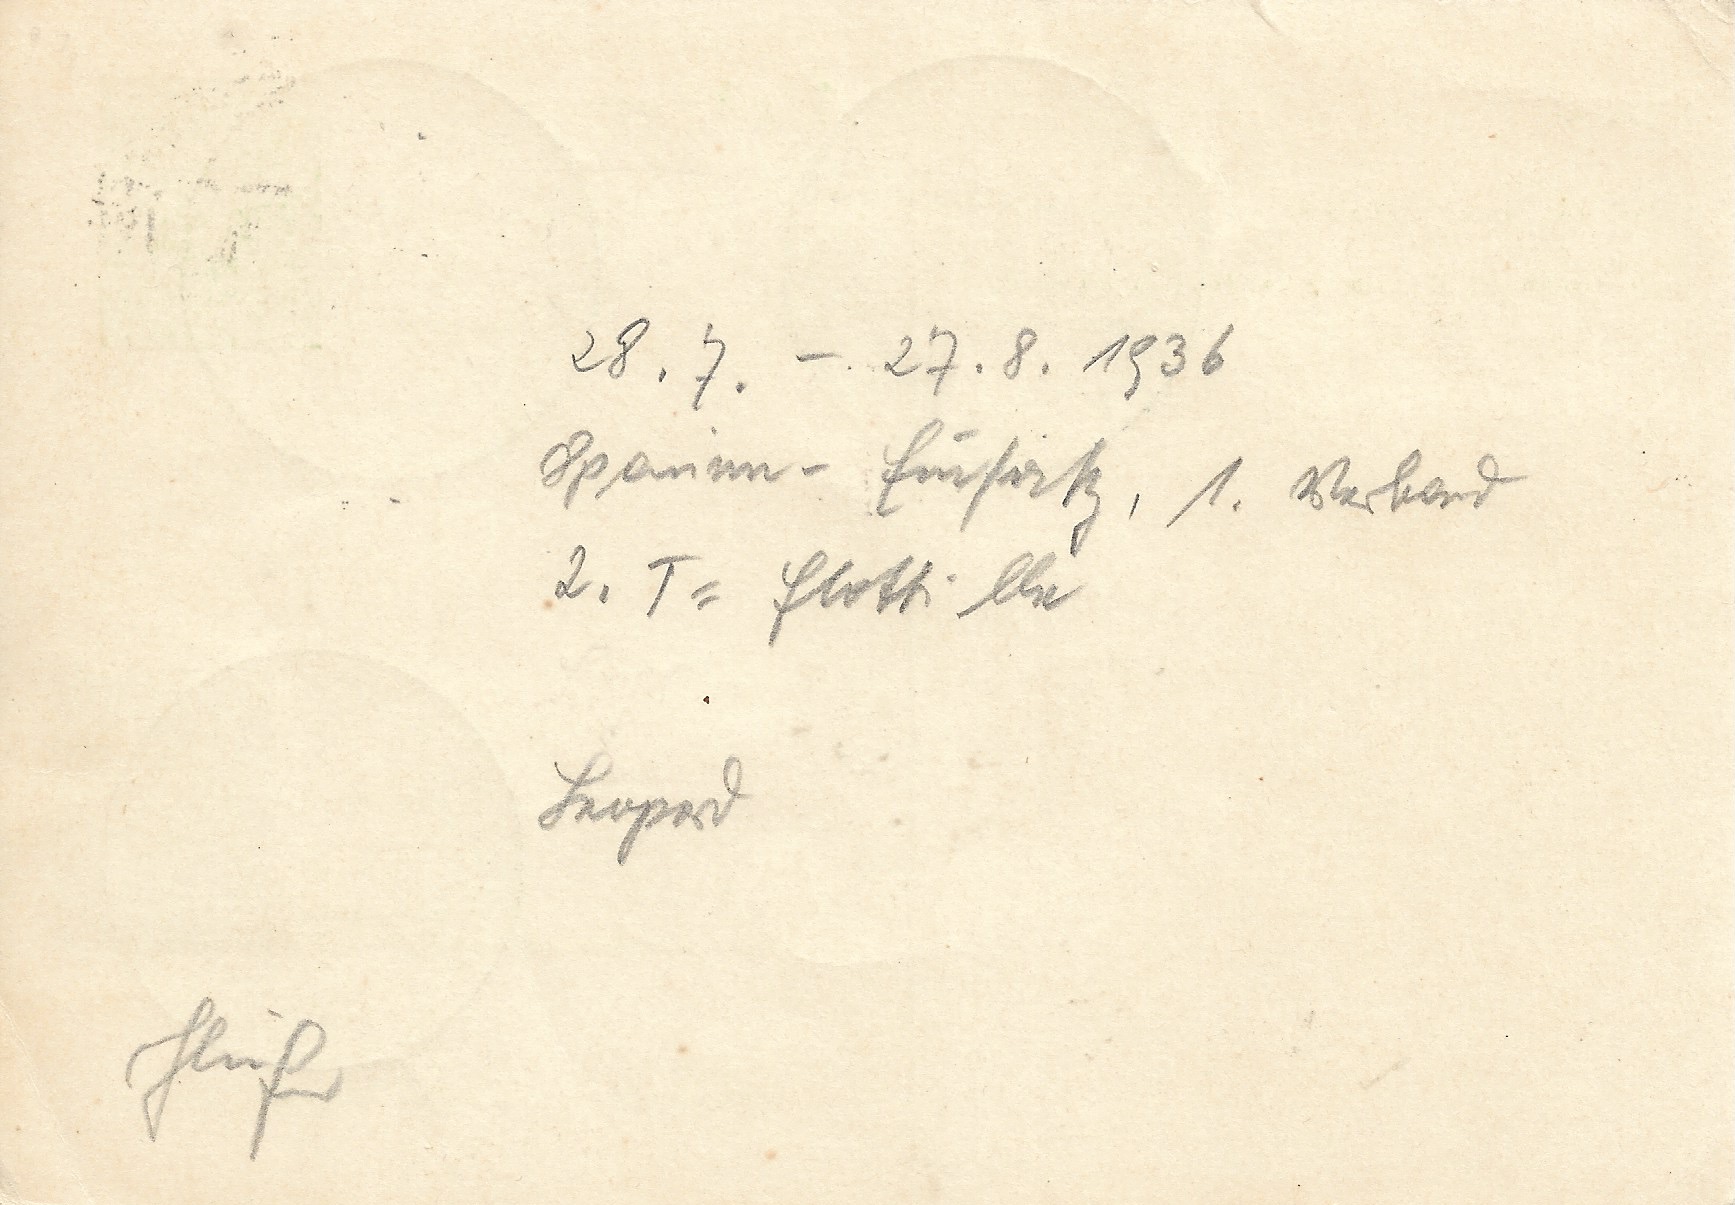 28. 7. - 27. 8. 1936
Spanien- Einsatz, 1. Verband
2. T= Flottille
Leopard